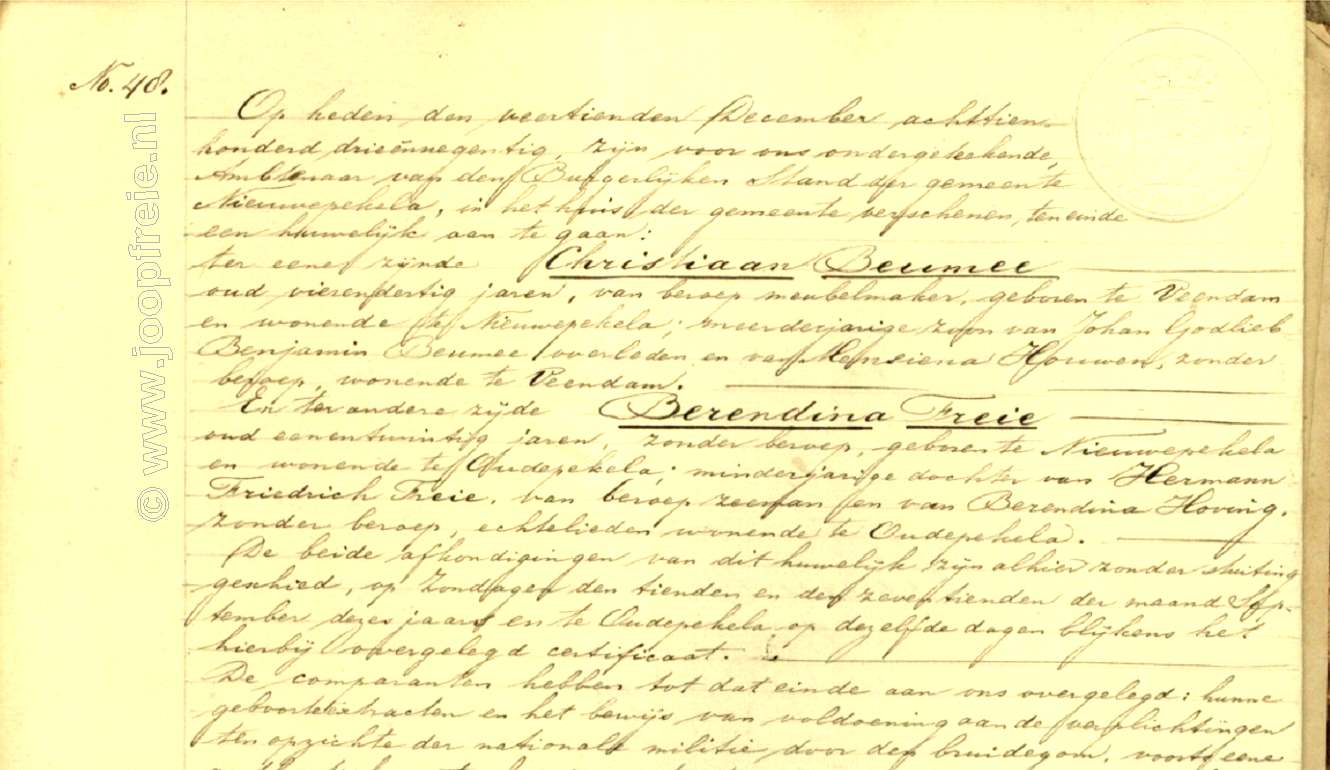 No. 48.
Op heden den veertienden December achttien-
honderd drieënnegentig, zijn voor ons ondergeteekende,
Ambtenaar van den Burgerlijken Stand der gemeente
Nieuwepekela, in het huis der gemeente verschenen, teneinde
een huwelijk aan te gaan:
ter eener zijnde Christiaan Beumee
oud vierendertig jaren, van beroep meubelmaker, geboren te Veendam
en wonende te Nieuwepekela; meerderjarige zoon van Johan Godlieb
Benjamin Beumee overleden en van Hensiena Houwen, zonder
beroep, wonende te Veendam.
En ter andere zijde Berendina Freie
oud eenentwintig jaren, zonder beroep, geboren te Nieuwepekela
en wonende te Oudepekela; minderjarige dochter van Hermann
Friedrich Freie, van beroep zeeman en van Berendina Hoving,
zonder beroep, echtelieden wonende te Oudepekela.
De beide afkondigingen van dit huwelijk zijn alhier zonder stuiting
geschied, op Zondagen den tienden en den zeventienden der maand Sep-
tember dezes jaars en te Oudepekela op dezelfde dagen blijkens het
hierbij overgelegd certificaat.
De comparanten hebben tot dat einde aan ons overgelegd: hunne
geboorteextracten en het bewijs van voldoening aan de verplichtingen
ten opzichte der nationale militie door den bruidegom, voorts eene
© www.joopfreie.nl